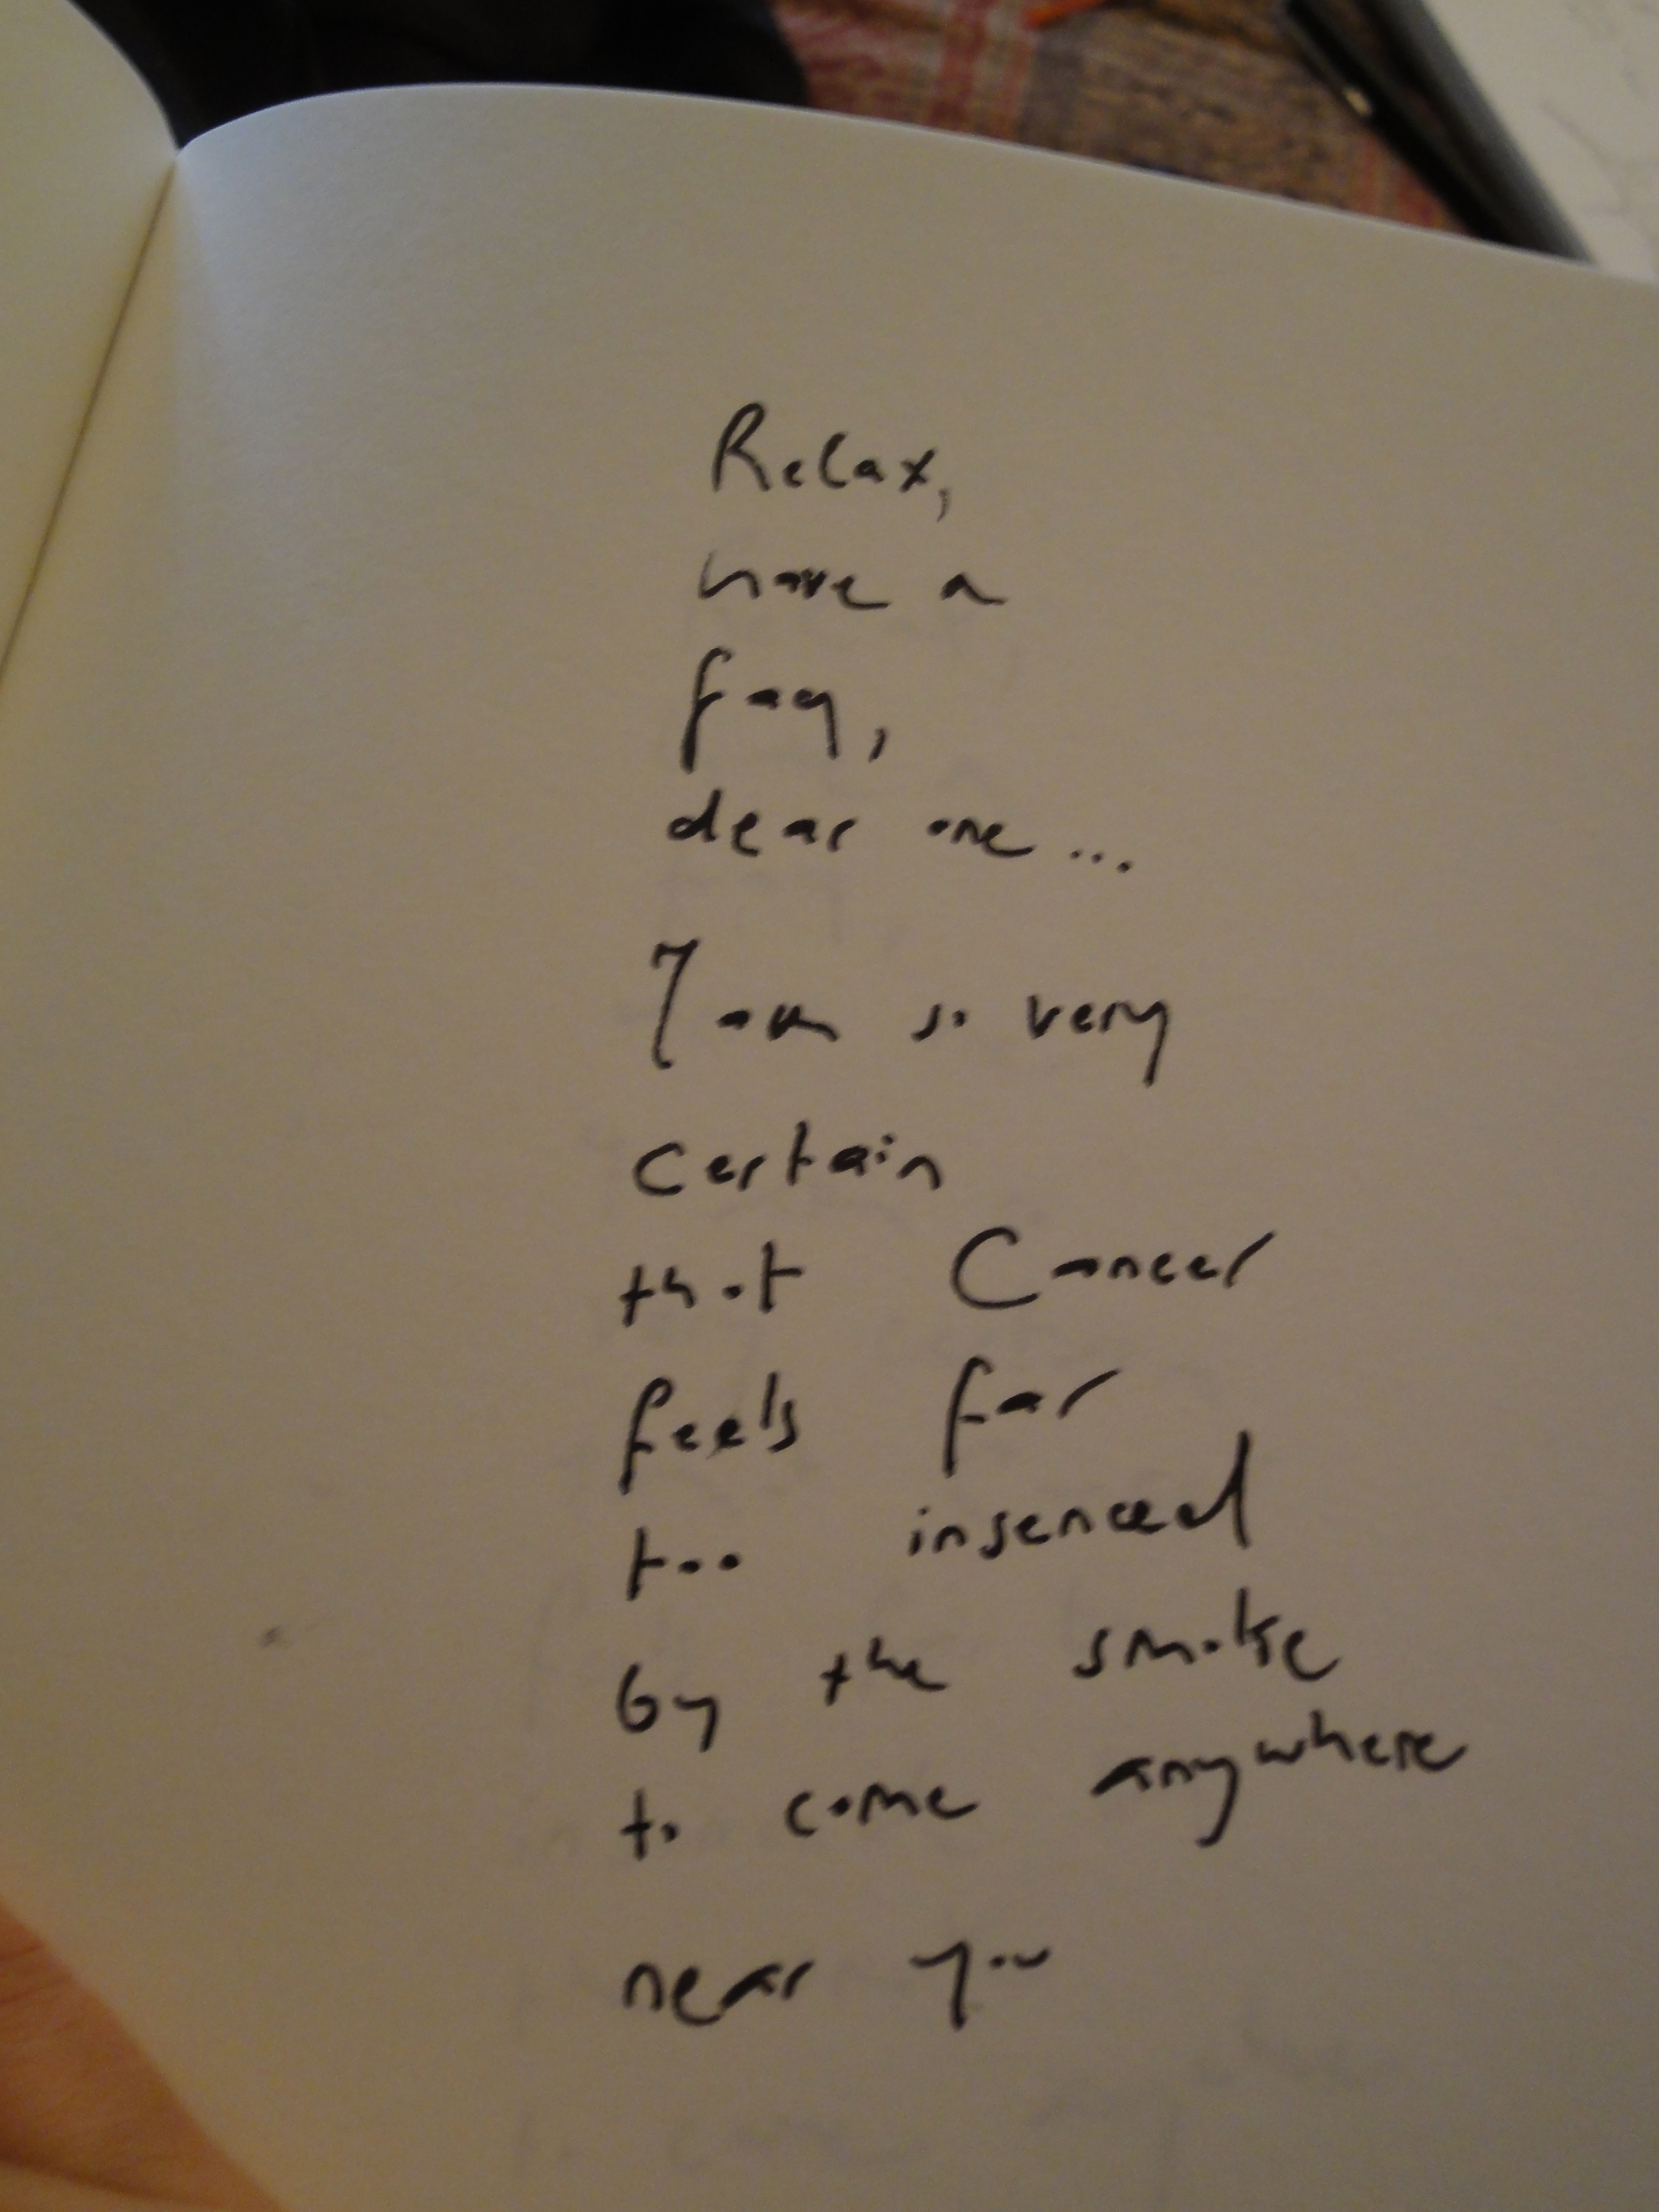 Relax,
have a
fag,
dear one...
I am so very
certain
that Cancer
feels far
too insenced
by the smoke
to come anywhere
near you